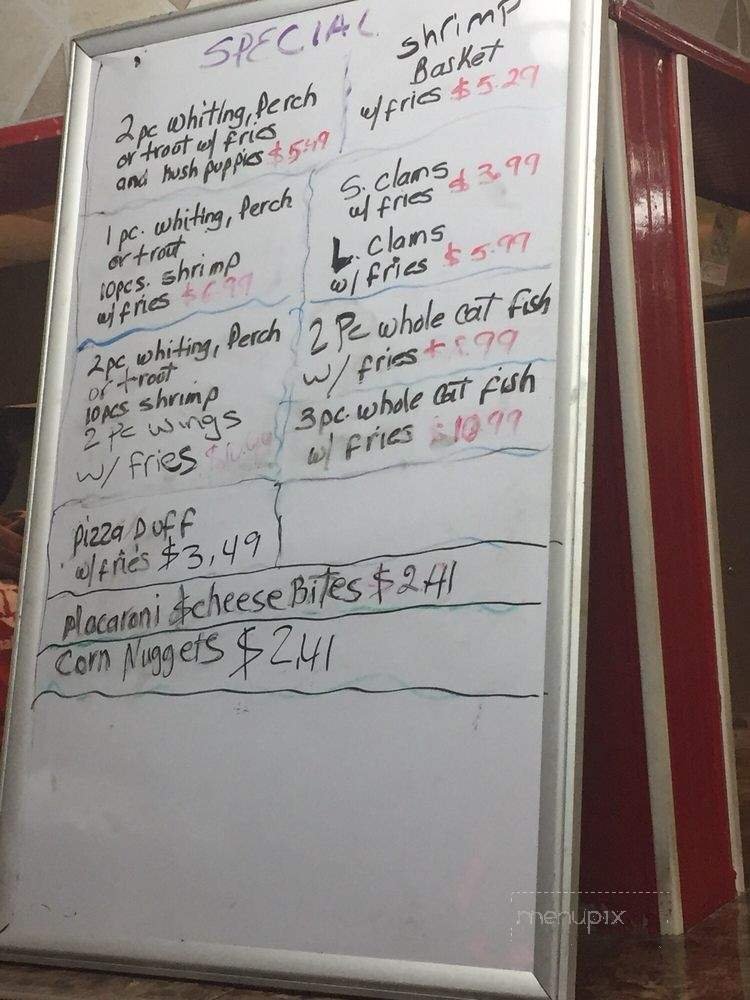 SPECIAL
2pc whiting, Perch
or trout w/ fries
and hush puppies $5.49
1 pc. whiting, Perch
or trout
10pcs. shrimp
w/fries $6.99
2pc whiting, Perch
or trout
10pcs shrimp
2 Pc wings
w/ fries
Pizza Duff
w/fries $3,49
shrimp
Basket
w/fries $5.29
S. clams
w/ fries $3.99
L. clams
w/fries $5.99
2 Pc whole cat fish
w/ fries
3pc. whole cat fish
w/ fries $10.99
Macaroni & cheese Bites $2.41
Corn Nuggets $2.41
menupix